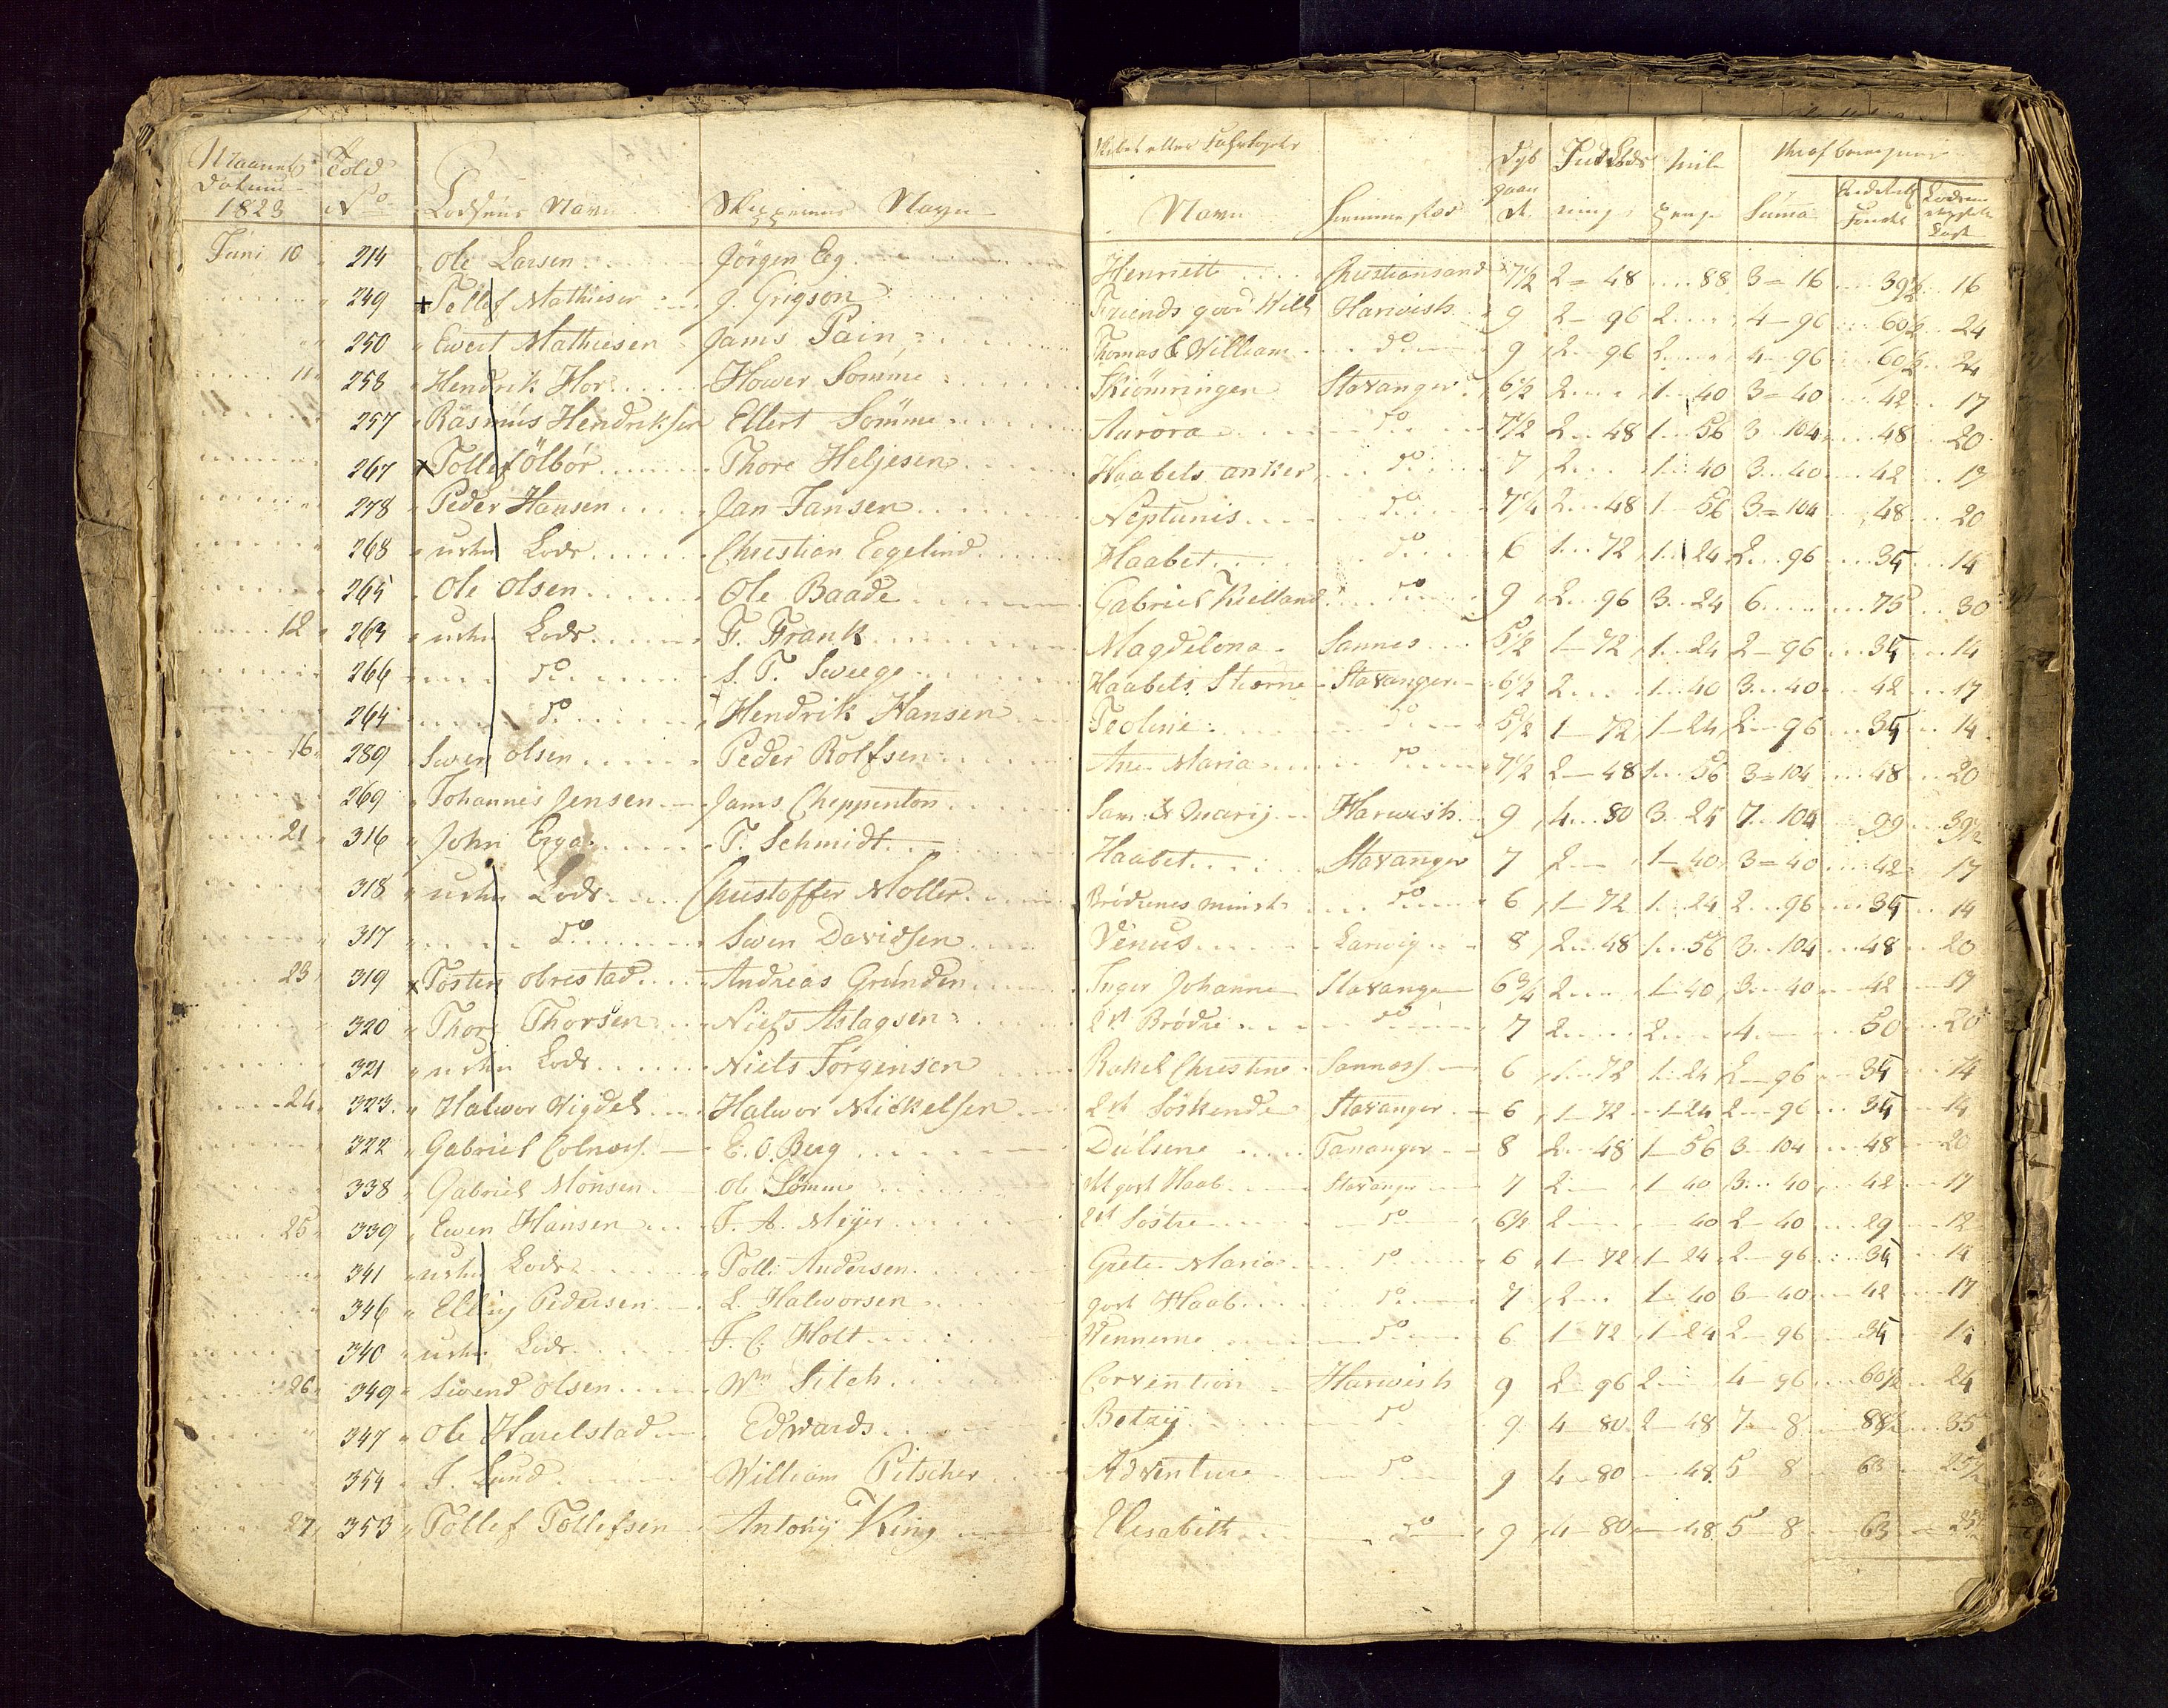 Maanet Datum 1823 Told No Lodsens Navn Skipperens Navn
Navn Hiemmestæd Dyb gaaende Ind Lodsning Miile Penge Suma
Juni 10 214 Ole Larsen Jörgen Eeg Henriett Christiansand 7½ 2 = 48 88 3 = 16 39½ 16
249 + Tollef Mathiesen J. Grigson Friends good Will Harwish 9 2 - 96 2 4 - 96 60½ 24
250 Ewert Mathiesen Jams Pain Thomas & William do 9 2 96 2 4 96 60½ 24
11 258 Hendrik Hor Hower Sömme Stavanger 6½ 2 1 40 3 = 40 42 17
257 Rasmus Hendriksen Ellert Sömme Aurora do 7½ 2 48 1 56 3 104 48 20
267 x Tollef Ölbör Thore Heljesen Haabets anker do 7 2 1 40 3 40 42 17
278 Peder Hansen Jan Jansen Neptunis do 7¼ 2 48 1 56 3 = 104 48 20
268 Lods Christian Eegelind Haabet do 6 1 72 1 24 2 96 34 14
265 Ole Olsen Ole Baade Gabriel Kielland do 9 2 96 3 24 6 75 30
12 263 Lods F. Frank Magdelona Sannes 5½ 1 72 1 24 2 96 34 14
266 do S. T. Sweege Haabets Stierne Stavanger 6½ 2 1 40 3 40 42 17
264 do Hendrik Hansen Teoline do 5½ 1 72 1 24 2 96 34 14
16 289 Swen Olsen Peder Rolfsen Ane Maria do 7½ 2 48 1 56 3 = 104 48 20
269 Johannes Jensen Jams Cheppenton Sam & Marij Harwish 9 4 80 3 24 7 104 99 39½
21 316 John Erga T. Schmidt Haabet Stavanger 7 2 1 40 3 = 40 42 17
318 Lods Christoffer Moller Brödrenes minde do 6 1 72 1 24 2 96 34 14
317 do Swen Davidsen Venus Larwig 8 2 48 1 56 3 104 48 20
23 319 x Tosten Obrestad Andreas Gründen Inger Johanne Stavanger 6¾ 2 1 40 3 40 42 17
320 Thore Thorsen Niels Aslagsen Brödre do 7 2 2 4 50 20
321 Lods Niels Jörgensen Rakel Christine Sanness 6 1 72 1 24 2 96 34 14
24 323 Halwor Wigdel Halwor Mickelsen Söskende Stavanger 6 1 72 1 24 2 96 34 14
322 Gabriel Colness E. O. Berg Tananger 8 2 48 1 56 3 104 48 20
338 Gabriel Monsen Ol Sömme godt Haab Stavanger 7 2 1 40 3 40 42 17
25 339 Ewen Hansen J. A. Meyer Söstre do 6½ 2 40 2 40 29 12
341 Lods Tolli Andersen Grete Maria do 6 1 72 1 24 2 96 34 14
346 Elling Pedersen L. Halworsen godt Haab do 7 2 1 40 3 40 42 17
340 Lods J. C. Holt Wennerne do 6 1 72 1 24 2 96 34 14
26 349 Swend Olsen Wm Sitch Corvention Harwish 9 2 96 2 4 96 60½ 24
347 Ole Harelstad Edwards Betzij do 9 4 80 2 48 7 8 88½ 35
354 J. Lund William Pitscher Adventure do 9 4 80 48 5 8 63 25½
27 353 Tollef Tollefsen Antonij King Elisabeth do 9 4 80 48 5 8 63 25½